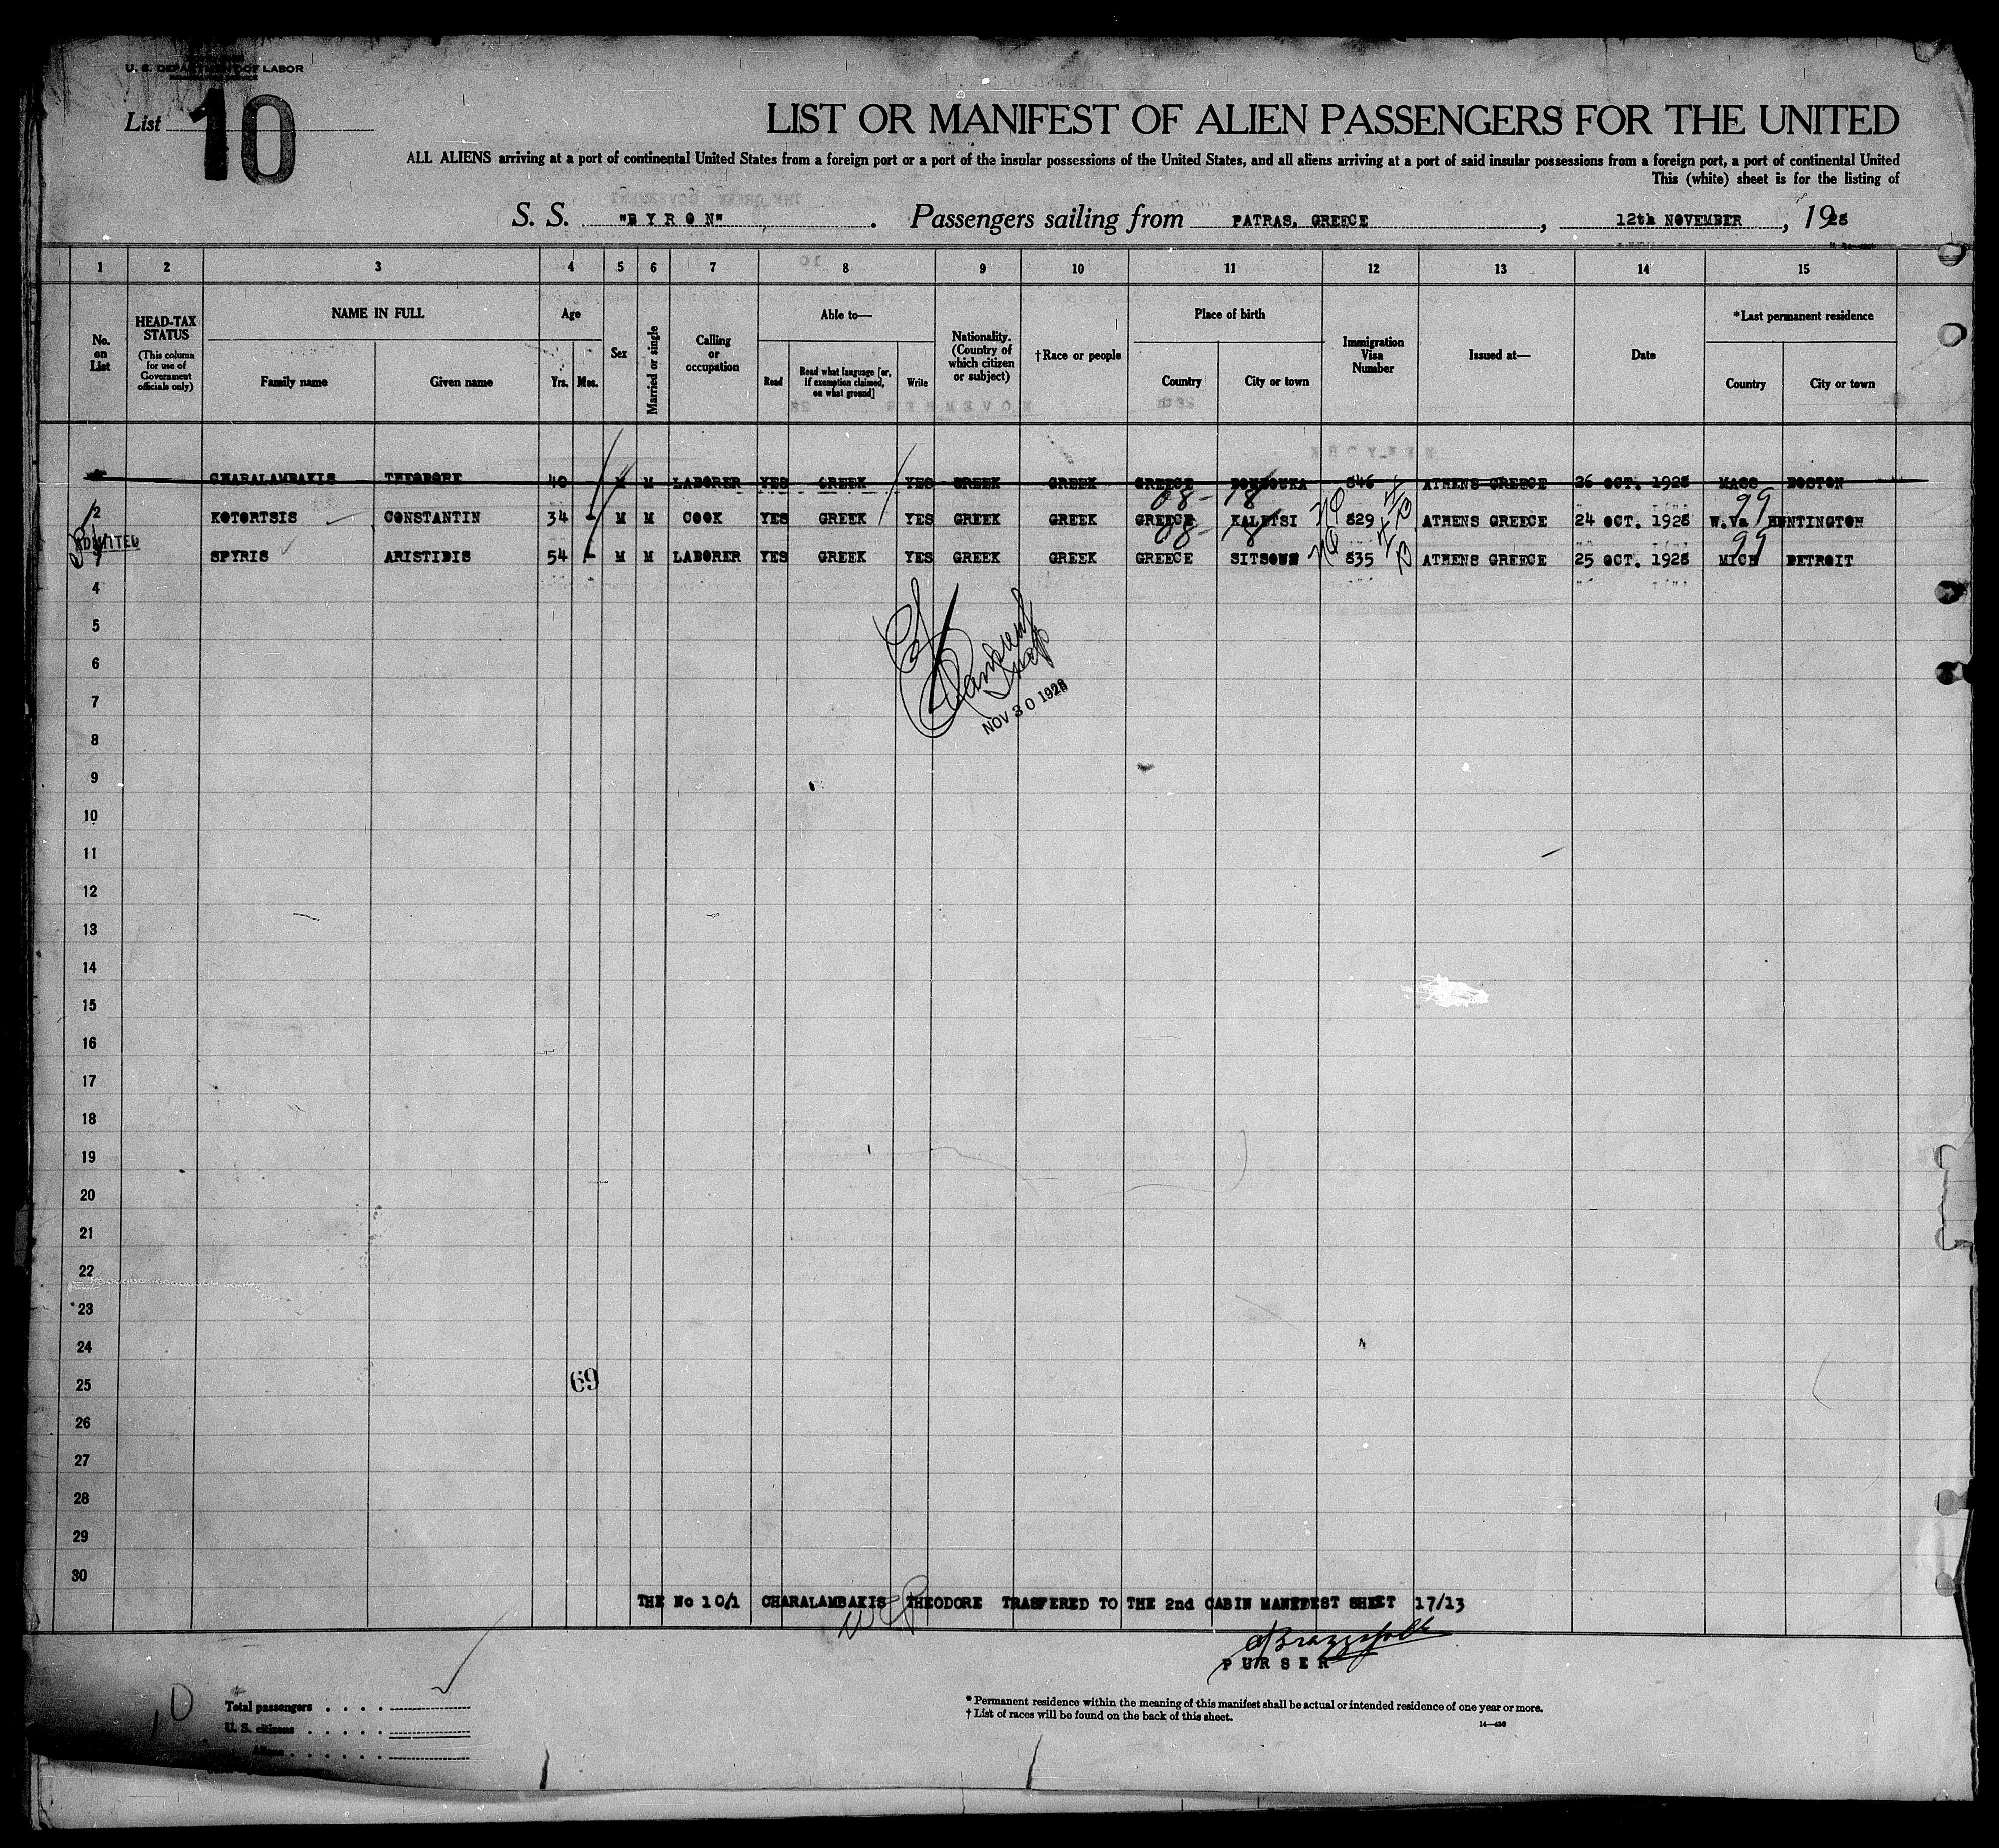 U. S. DEPARTMENT OF LABOR
IMMIGRATION SERVICE
List 10
LIST OR MANIFEST OF ALIEN PASSENGERS FOR THE UNITED
ALL ALIENS arriving at a port of continental United States from a foreign port or a port of the insular possessions of the United States, and all aliens arriving at a port of said insular possessions from a foreign port, a port of continental United
This (white) sheet is for the listing of
S. S. "BYRON". Passengers sailing from PATRAS, GREECE, 12th NOVEMBER, 1928
1 2 3 4 5 6 7 8 9 10 11 12 13 14 15
No. on List
HEAD-TAX STATUS (This column for use of Government officials only)
NAME IN FULL
Family name Given name
Age
Yrs. Mos.
Sex
Married or single
Calling or occupation
Able to—
Read Read what language [or, if exemption claimed, on what ground] Write
Nationality. (Country of which citizen or subject)
†Race or people
Place of birth
Country City or town
Immigration Visa Number
Issued at—
Date
*Last permanent residence
Country City or town
CHARALAMBAKIS THEODORE 40 M M LABORER YES GREEK YES GREEK GREEK GREECE 846 ATHENS GREECE 26 OCT. 1928 MASS BOSTON
08- 18 99
2 KOTORTSIS CONSTANTIN 34 - M M COOK YES GREEK YES GREEK GREEK GREECE KALETSI 829 ATHENS GREECE 24 OCT. 1928 W.Va HUNTINGTON
08- 18 99
ADMITTED
SPYRIS ARISTIDIS 54 - M M LABORER YES GREEK YES GREEK GREEK GREECE 835 ATHENS GREECE 25 OCT. 1928 MICH DETROIT
4
5
6
7
NOV 30 1928
8
9
10
11
12
13
14
15
16
17
18
19
20
21
22
23
24
25
69
26
27
28
29
30
THE No 10/1 CHARALAMBAKIS THEODORE TRASFERED TO THE 2nd CABIN MANEFEST SHEET 17/13
PURSER
Total passengers
U. S. citizens
Aliens
* Permanent residence within the meaning of this manifest shall be actual or intended residence of one year or more.
† List of races will be found on the back of this sheet.
14—430